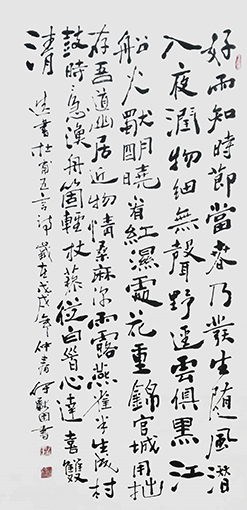 好雨知時節當春乃發生隨風潛
入夜潤物細無聲野逕雲俱黑江
船火獨明曉看紅濕處花重錦官城用拙
存吾道幽居近物情桑麻深雨露燕雀半生成村
鼓時〻急漁舟箇〻輕杖藜從白首心迹喜雙
清
書杜甫五言詩歲在戊戌年仲春書